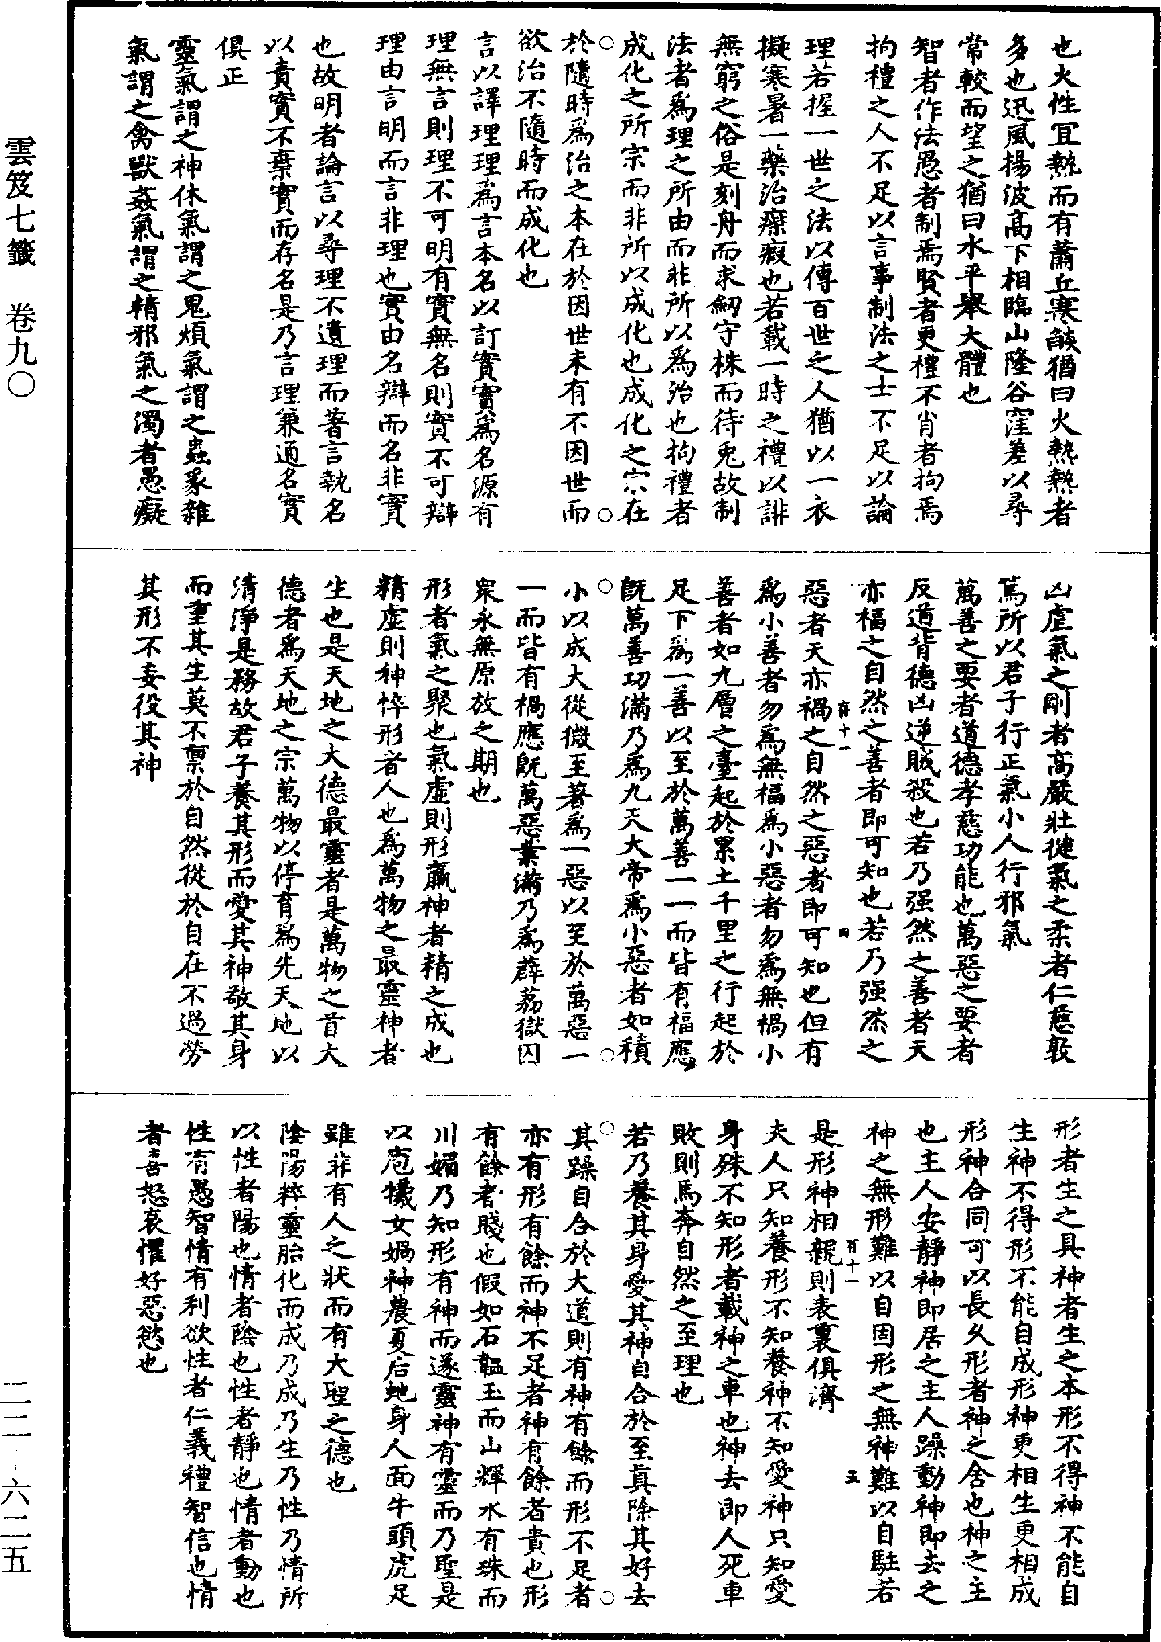 也火性宜熱而有蕭丘寒燄猶曰火熱熱者
多也迅風揚波高下相臨山隆谷窪差以尋
常較而望之猶曰水平舉大體也
智者作法愚者制焉賢者更禮不肖者拘焉
拘禮之人不足以言事制法之士不足以論
理若握一世之法以傳百世之人猶以一衣
擬寒暑一藥治瘵瘕也若載一時之禮以誹
無窮之俗是刻舟而求劒守株而待兎故制
法者爲理之所由而非所以爲治也拘禮者
成化之所宗而非所以成化也成化之宗在
於隨時爲治之本在於因世未有不因世而
欲治不隨時而成化也
言以譯理理爲言本名以訂實實爲名源有
理無言則理不可明有實無名則實不可辯
理由言明而言非理也實由名辯而名非實
也故明者論言以尋理不遺理而著言執名
以責實不棄實而存名是乃言理兼通名實
俱正
靈氣謂之神休氣謂之鬼煩氣謂之蟲豕雜
氣謂之禽獸姦氣謂之精邪氣之濁者愚癡
凶虐氣之剛者高嚴壯徤氣之柔者仁慈敦
篤所以君子行正氣小人行邪氣
萬善之要者道德孝慈功能也萬惡之要者
反道背德凶逆賊殺也若乃强然之善者天
亦福之自然之善者即可知也若乃强然之
惡者天亦禍之自然之惡者即可知也但有
爲小善者勿爲無福爲小惡者勿爲無禍小
善者如九層之臺起於累土千里之行起於
足下爲一善以至於萬善一一而皆有福應
既萬善功滿乃爲九天大帝爲小惡者如積
小以成大從微至著爲一惡以至於萬惡一
一而皆有禍應既萬惡業滿乃爲薜荔獄囚
衆永無原放之期也
形者氣之聚也氣虛則形羸神者精之成也
精虛則神悴形者人也爲萬物之最靈神者
生也是天地之大德最靈者是萬物之首大
德者爲天地之宗萬物以停育爲先天地以
清淨是務故君子養其形而愛其神敬其身
而重其生莫不禀於自然從於自在不過勞
其形不妄役其神
形者生之具神者生之本形不得神不能自
生神不得形不能自成形神更相生更相成
形神合同可以長久形者神之舍也神之主
也主人安靜神即居之主人躁動神即去之
神之無形難以自固形之無神難以自駐若
是形神相親則表裏俱濟
夫人只知養形不知養神不知愛神只知愛
身殊不知形者載神之車也神去即人死車
敗則馬奔自然之至理也
若乃養其身愛其神自合於至眞除其好去
其躁自合於大道則有神有餘而形不足者
亦有形有餘而神不足者神有餘者貴也形
有餘者賤也假如石韞玉而山輝水有珠而
川媚乃知形有神而遂靈神有靈而乃聖是
以庖犧女媧神農夏后虵身人面牛頭虎足
雖非有人之狀而有大聖之德也
陰陽粹靈胎化而成乃成乃生乃性乃情所
以性者陽也情者陰也性者靜也情者動也
性有愚智情有利欲性者仁義禮智信也情
者喜怒哀懼好惡慾也
雲笈七籤　卷九〇
二二-六二五